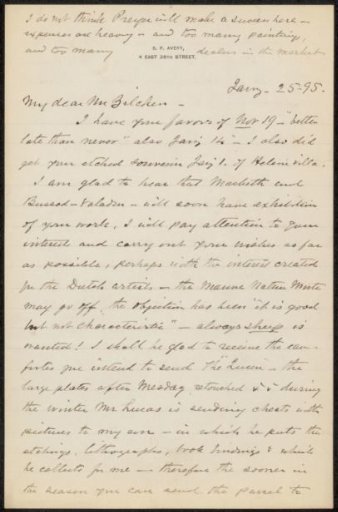 I do not think Preyer will make a success here –
expenses are heavy – and too many paintings,
and too many dealers in the market
S. P. AVERY,
4 EAST 38TH STREET.
Jany – 25 – 95.
My dear Mr Zilcken –
I have your favors of Nov 19 "better
late than never" also Jany 14 – I also did
get your etched souvenir Jany 1. of Helene Villa.
I am glad to hear that Macbeth and
Bussod-Valadon – will soon have exhibition
of your works, I will pay attention to your
interest and carry out your wishes as far
as possible, perhaps with the interest created
for the Dutch artists – the Mauve Nature Morte
may go off, the objection has been "it is good
but not characteristic" – always sheep is
wanted! I shall be glad to receive the
you intend to send The Queen – the
large plates after Mesdag, retouched & & during
the winter Mr Lucas is sending chests with
pictures to my son – in which he puts the
etchings, lithographs, book bindings & which
he collects for me – therefore the sooner in
the season you can send the parcel to